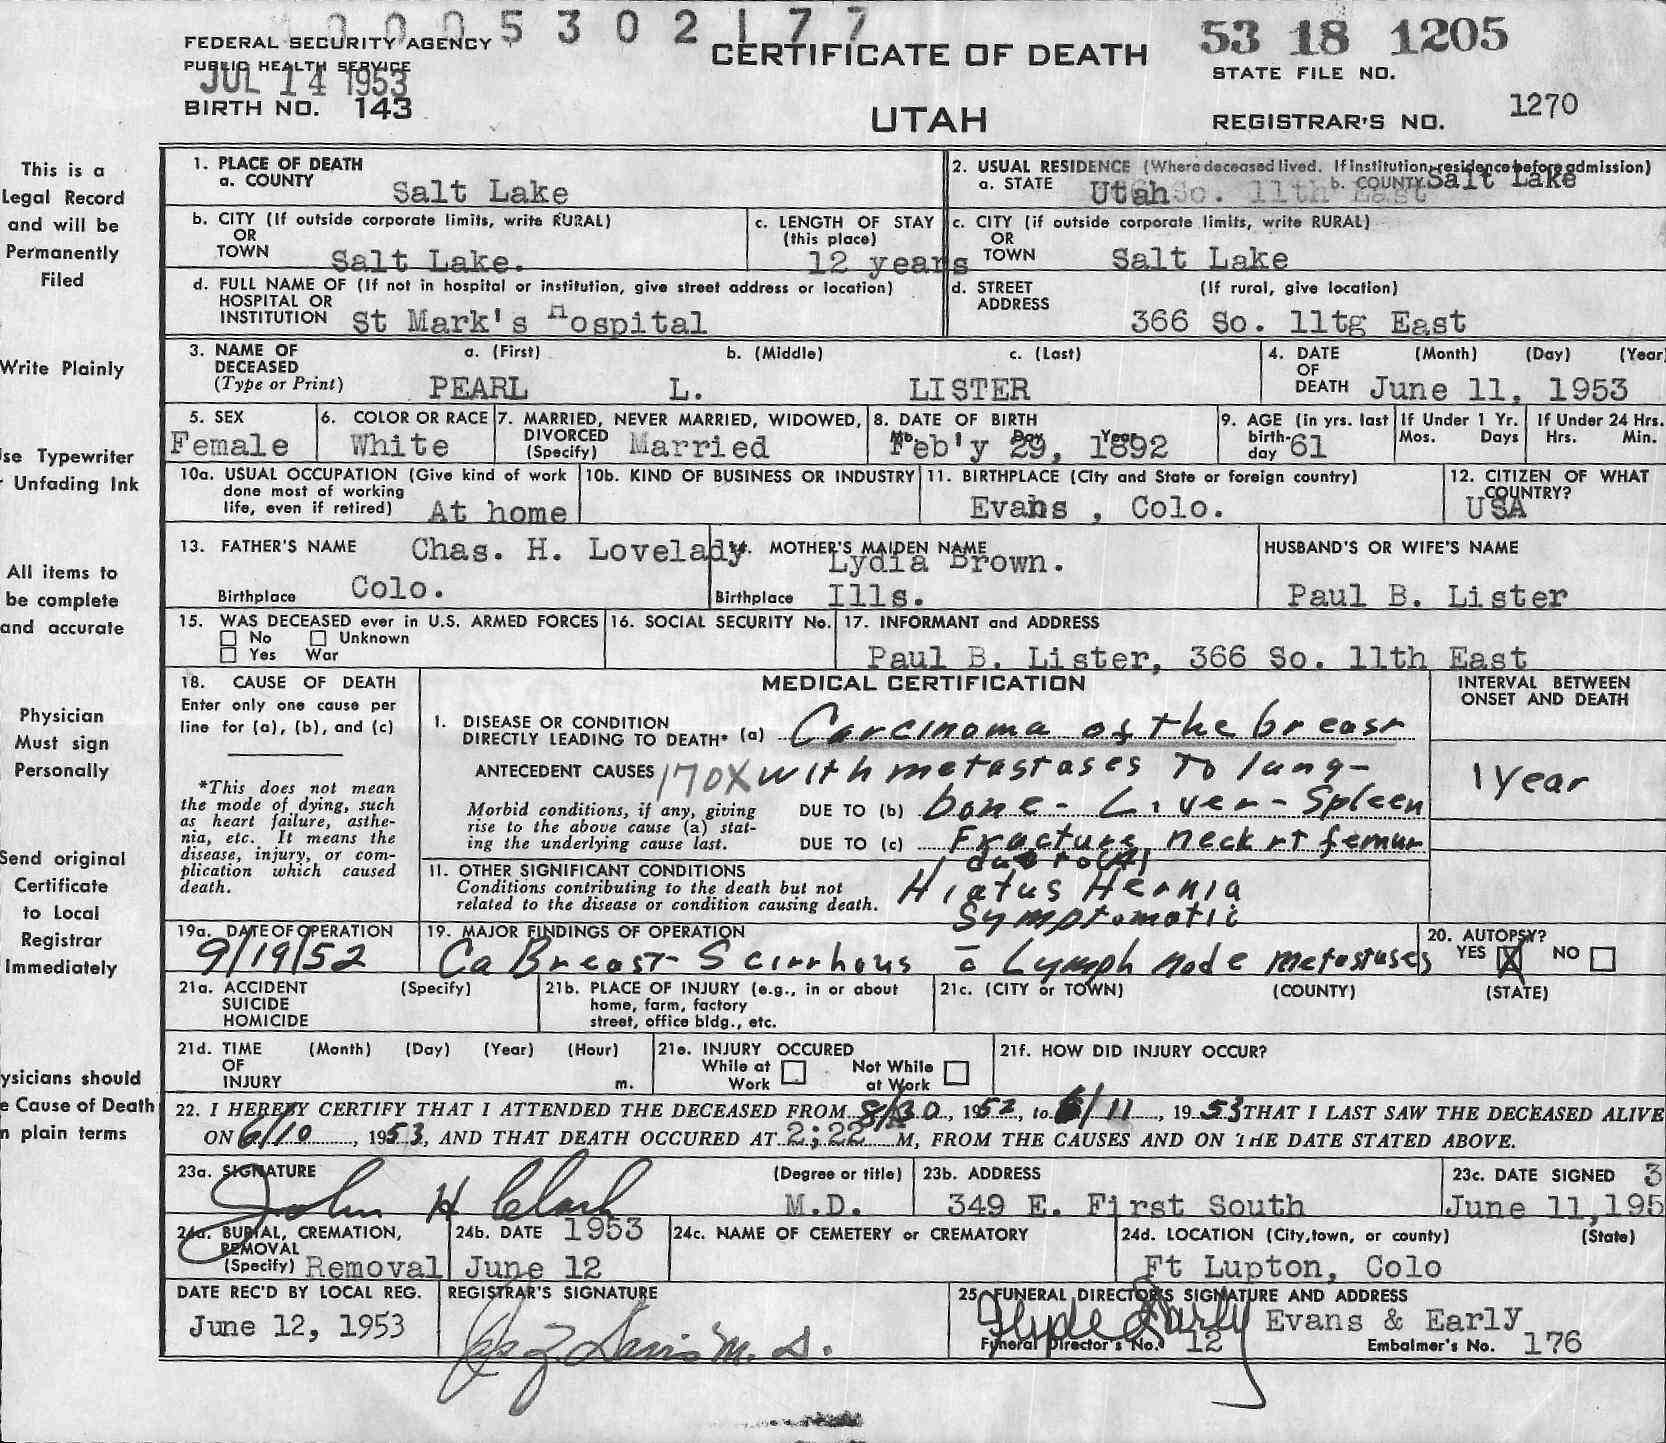 1 0 0 0 5 3 0 2 1 7 7
FEDERAL SECURITY AGENCY
PUBLIC HEALTH SERVICE
JUL 14 1953
BIRTH NO. 143
CERTIFICATE OF DEATH
UTAH
53 18 1205
STATE FILE NO.
REGISTRAR'S NO. 1270
This is a
Legal Record
and will be
Permanently
Filed
Write Plainly
se Typewriter
Unfading Ink
All items to
be complete
and accurate
Physician
Must sign
Personally
Send original
Certificate
to Local
Registrar
Immediately
ysicians should
e Cause of Death
n plain terms
1. PLACE OF DEATH
a. COUNTY Salt Lake
2. USUAL RESIDENCE (Where deceased lived. If institution, residence before admission)
a. STATE Utah b. COUNTY Salt Lake
So. 11th East
b. CITY (If outside corporate limits, write RURAL)
OR
TOWN Salt Lake.
c. LENGTH OF STAY
(this place)
12 years
c. CITY (if outside corporate limits, write RURAL)
OR
TOWN Salt Lake
d. FULL NAME OF (If not in hospital or institution, give street address or location)
HOSPITAL OR
INSTITUTION St Mark's Hospital
d. STREET (If rural, give location)
ADDRESS
366 So. 11tg East
3. NAME OF a. (First) b. (Middle) c. (Last)
DECEASED
(Type or Print) PEARL L. LISTER
4. DATE (Month) (Day) (Year
OF
DEATH June 11, 1953
5. SEX
Female
6. COLOR OR RACE
White
7. MARRIED, NEVER MARRIED, WIDOWED,
DIVORCED
(Specify) Married
8. DATE OF BIRTH
Mo. Day Year
Feb'y 29, 1892
9. AGE (in yrs. last
birth-
day 61
If Under 1 Yr.
Mos. Days
If Under 24 Hrs.
Hrs. Min.
10a. USUAL OCCUPATION (Give kind of work
done most of working
life, even if retired) At home
10b. KIND OF BUSINESS OR INDUSTRY
11. BIRTHPLACE (City and State or foreign country)
Evans , Colo.
12. CITIZEN OF WHAT
COUNTRY?
USA
13. FATHER'S NAME Chas. H. Lovelady.
Birthplace Colo.
MOTHER'S MAIDEN NAME
Lydia Brown.
Birthplace Ills.
HUSBAND'S OR WIFE'S NAME
Paul B. Lister
15. WAS DECEASED ever in U.S. ARMED FORCES
No Unknown
Yes War
16. SOCIAL SECURITY No.
17. INFORMANT and ADDRESS
Paul B. Lister, 366 So. 11th East
18. CAUSE OF DEATH
Enter only one cause per
line for (a), (b), and (c)
*This does not mean
the mode of dying, such
as heart failure, asthe-
nia, etc. It means the
disease, injury, or com-
plication which caused
death.
MEDICAL CERTIFICATION
INTERVAL BETWEEN
ONSET AND DEATH
I. DISEASE OR CONDITION
DIRECTLY LEADING TO DEATH* (a) Carcinoma of the breast
ANTECEDENT CAUSES 170X with metastases to lung-
1 year
Morbid conditions, if any, giving
rise to the above cause (a) stat-
ing the underlying cause last.
DUE TO (b) bone - Liver - Spleen
DUE TO (c) Fracture, neck rt femur
due to (A)
11. OTHER SIGNIFICANT CONDITIONS
Conditions contributing to the death but not
related to the disease or condition causing death.
Hiatus Hernia
Symptomatic
19a. DATE OF OPERATION
9/19/52
19. MAJOR FINDINGS OF OPERATION
Ca Breast - Scirrhous c̄ Lymph node metastases
20. AUTOPSY?
YES X NO
21a. ACCIDENT (Specify)
SUICIDE
HOMICIDE
21b. PLACE OF INJURY (e.g., in or about
home, farm, factory
street, office bldg., etc.
21c. (CITY or TOWN) (COUNTY) (STATE)
21d. TIME (Month) (Day) (Year) (Hour)
OF
INJURY m.
21e. INJURY OCCURED
While at Not While
Work at Work
21f. HOW DID INJURY OCCUR?
22. I HEREBY CERTIFY THAT I ATTENDED THE DECEASED FROM 8/30, 1952, to 6/11, 1953 THAT I LAST SAW THE DECEASED ALIVE
ON 6/10, 1953, AND THAT DEATH OCCURED AT 2:22 M, FROM THE CAUSES AND ON THE DATE STATED ABOVE.
23a. SIGNATURE (Degree or title)
John H Clark M.D.
23b. ADDRESS
349 E. First South
23c. DATE SIGNED 3
June 11,195
24a. BURIAL, CREMATION,
REMOVAL
(Specify) Removal
24b. DATE 1953
June 12
24c. NAME OF CEMETERY OR CREMATORY
24d. LOCATION (City, town, or county) (State)
Ft Lupton, Colo
DATE REC'D BY LOCAL REG.
June 12, 1953
REGISTRAR'S SIGNATURE
Davis M. D.
25. FUNERAL DIRECTOR'S SIGNATURE AND ADDRESS
Clyde Early Evans & Early
Funeral Director's No. 12 Embalmer's No. 176